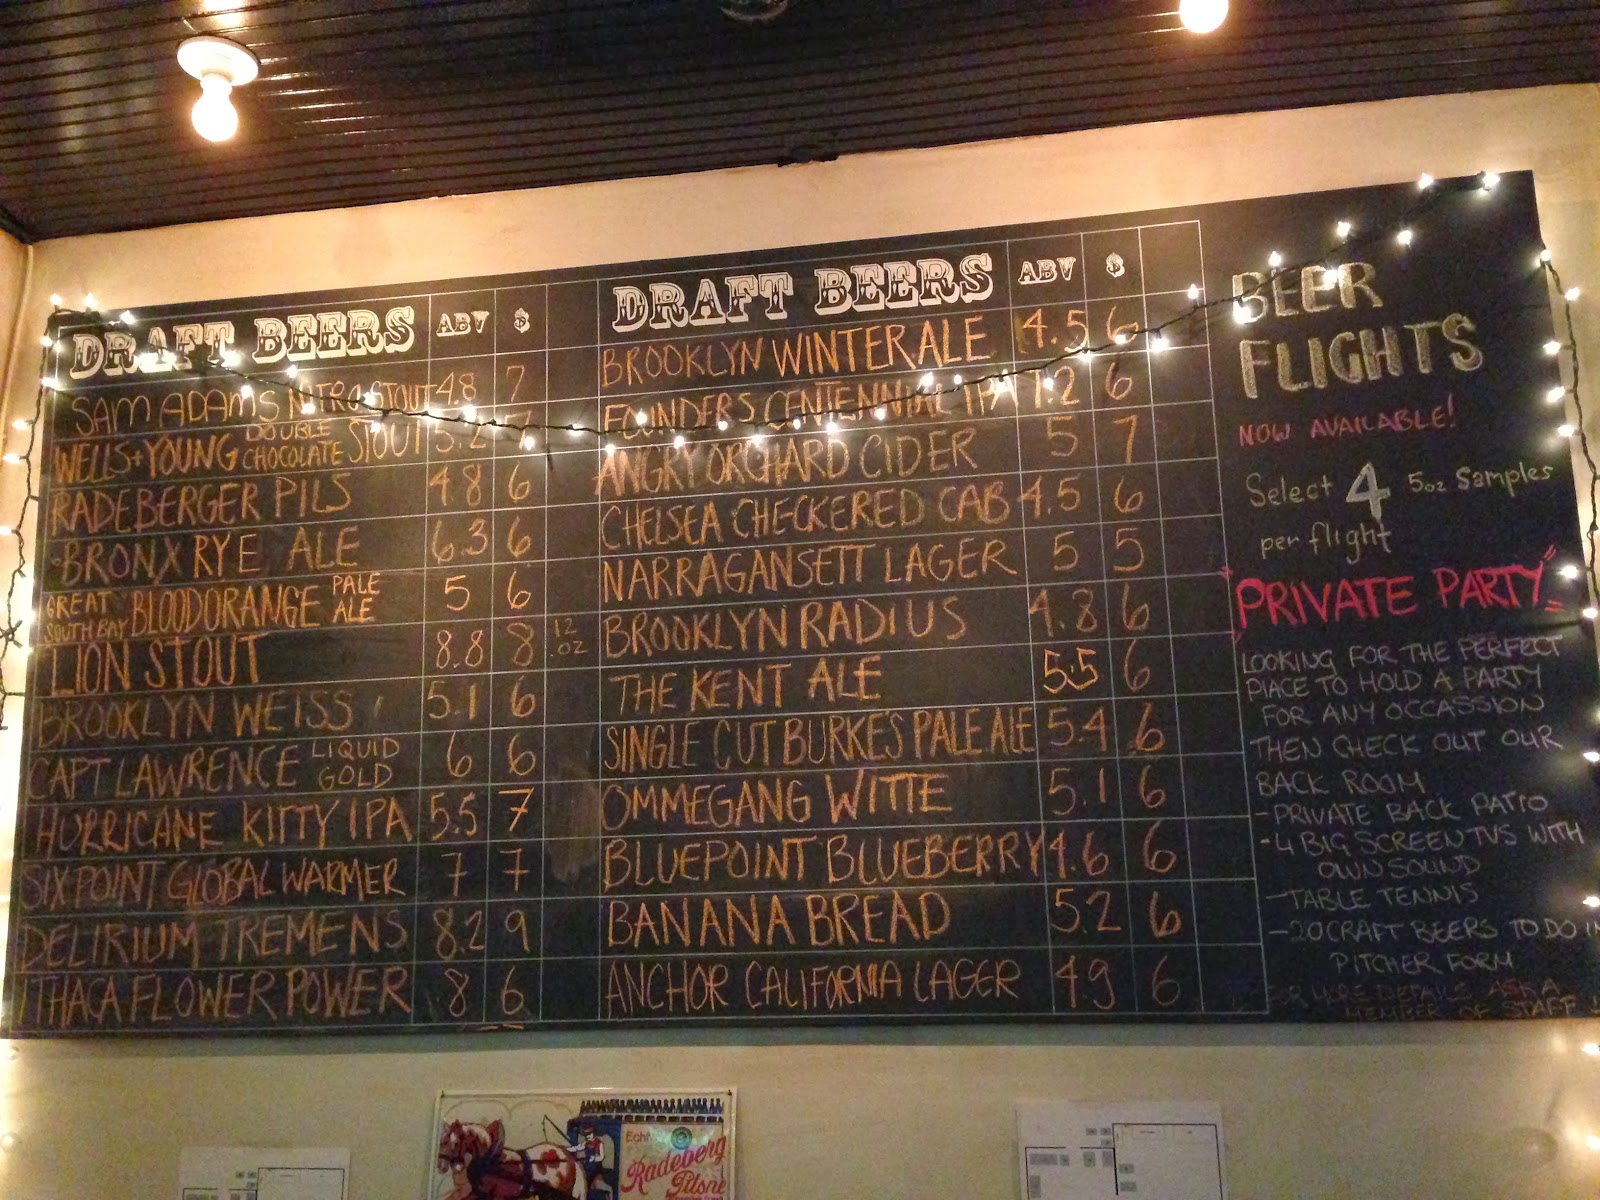 DRAFT BEERS ABV $
SAM ADAMS NITRO STOUT 4.8 7
WELLS + YOUNG DOUBLE CHOCOLATE STOUT 5.2 7
RADEBERGER PILS 4.8 6
BRONX RYE ALE 6.3 6
GREAT SOUTH BAY BLOOD ORANGE PALE ALE 5 6
LION STOUT 8.8 8 12 OZ
BROOKLYN WEISS 5.1 6
CAPT LAWRENCE LIQUID GOLD 6 6
HURRICANE KITTY IPA 5.5 7
SIXPOINT GLOBAL WARMER 7 7
DELIRIUM TREMENS 8.2 9
ITHACA FLOWER POWER 8 6
DRAFT BEERS ABV $
BROOKLYN WINTER ALE 4.5 6
FOUNDERS CENTENNIAL IPA 7.2 6
ANGRY ORCHARD CIDER 5 7
CHELSEA CHECKERED CAB 4.5 6
NARRAGANSETT LAGER 5 5
BROOKLYN RADIUS 4.8 6
THE KENT ALE 5.5 6
SINGLE CUT BURKE'S PALE ALE 5.4 6
OMMEGANG WITTE 5.1 6
BLUEPOINT BLUEBERRY 4.6 6
BANANA BREAD 5.2 6
ANCHOR CALIFORNIA LAGER 4.9 6
BEER
FLIGHTS
NOW AVAILABLE!
Select 4 5oz Samples
per flight
"PRIVATE PARTY"
LOOKING FOR THE PERFECT
PLACE TO HOLD A PARTY
FOR ANY OCCASSION
THEN CHECK OUT OUR
BACK ROOM
- PRIVATE BACK PATIO
- 4 BIG SCREEN TVS WITH
OWN SOUND
- TABLE TENNIS
- 20 CRAFT BEERS TO DO IN
PITCHER FORM
FOR MORE DETAILS ASK A
MEMBER OF STAFF!
Echt
Radeberg
Pilsne